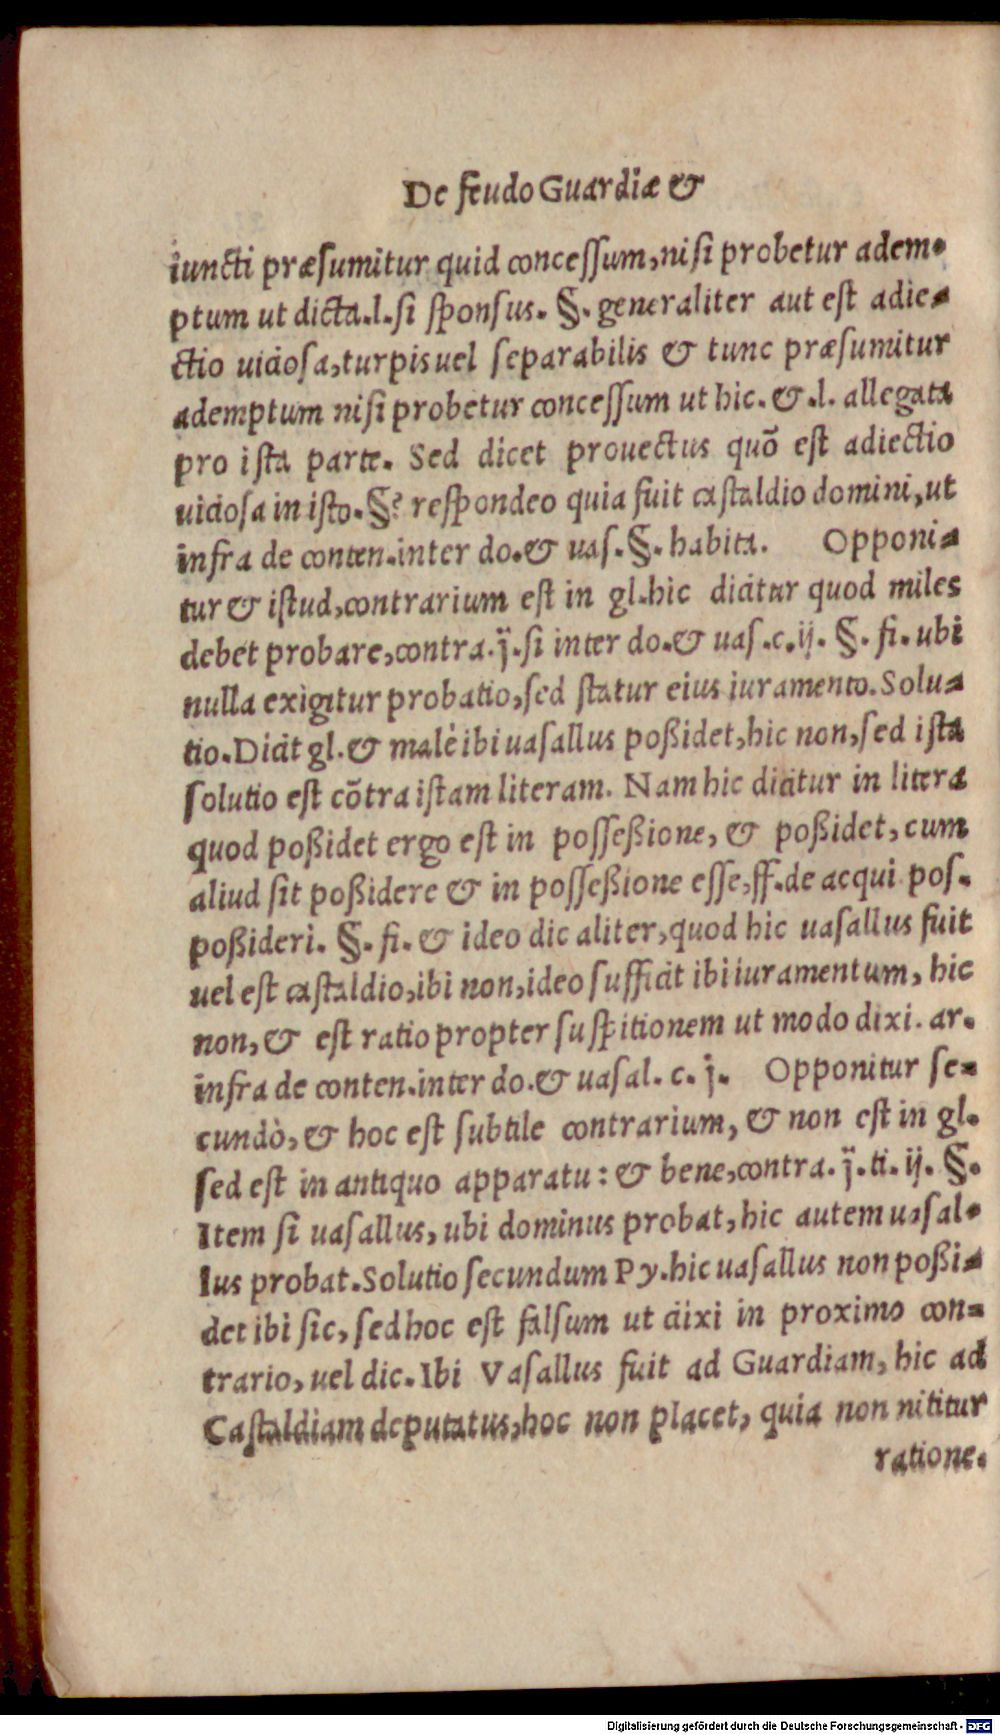 De feudo Guardiæ &
iuncti præsumitur quid concessum, nisi probetur adem-
ptum ut dicta.l.si sponsus. §. generaliter aut est adie-
ctio uiciosa, turpis uel separabilis & tunc præsumitur
ademptum nisi probetur concessum ut hic. &.l. allegata
pro ista parte. Sed dicet prouectus quõ est adiectio
uiciosa in isto.§? respondeo quia fuit castaldio domini, ut
infra de conten.inter do.& uas.§. habita. Opponi-
tur & istud, contrarium est in gl.hic dicitur quod miles
debet probare, contra.j̈.si inter do.& uas.c.ij. §. fi. ubi
nulla exigitur probatio, sed statur eius iuramento. Solu-
tio. Dicit gl. & malè ibi uasallus poßidet, hic non, sed ista
solutio est cõtra istam literam. Nam hic dicitur in litera
quod poßidet ergo est in posseßione, & poßidet, cum
aliud sit poßidere & in posseßione esse, ff.de acqui pos.
poßideri. §. fi. & ideo dic aliter, quod hic uasallus fuit
uel est castaldio, ibi non, ideo sufficit ibi iuramentum, hic
non, & est ratio propter suspitionem ut modo dixi. ar.
infra de conten.inter do.& uasal. c. j. Opponitur se-
cundò, & hoc est subtile contrarium, & non est in gl.
sed est in antiquo apparatu: & bene, contra. j̈. ti. ij. §.
Item si uasallus, ubi dominus probat, hic autem uasal-
lus probat. Solutio secundum Py. hic uasallus non poßi-
det ibi sic, sed hoc est falsum ut dixi in proximo con-
trario, uel dic. Ibi Vasallus fuit ad Guardiam, hic ad
Castaldiam deputatus, hoc non placet, quia non nititur
ratione.
Digitalisierung gefördert durch die Deutsche Forschungsgemeinschaft - DFG